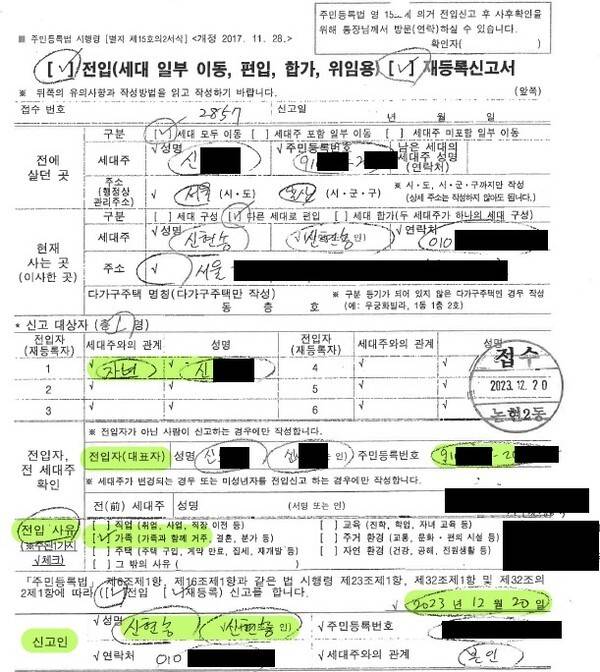 주민등록법 영 15 에 의거 전입신고 후 사후확인을
위해 통장님께서 방문(연락)하실 수 있습니다.
확인자( )
■ 주민등록법 시행령 [별지 제15호의2서식] <개정 2017. 11. 28.>
[√] 전입(세대 일부 이동, 편입, 합가, 위임용) [√] 재등록신고서
※ 뒤쪽의 유의사항과 작성방법을 읽고 작성하기 바랍니다. (앞쪽)
접수 번호 2857 신고일 년 월 일
전에 살던 곳
구분 [√] 세대 모두 이동 [ ] 세대주 포함 일부 이동 [ ] 세대주 미포함 일부 이동
세대주 √성명 신 √주민등록번호 91 -2 남은 세대의 세대주 성명 (연락처)
주소 (행정상 관리주소) 서울 (시·도) (시·군·구) ※ 시·도, 시·군·구까지만 작성 (상세 주소는 작성하지 않아도 됩니다.)
현재 사는 곳 (이사한 곳)
구분 [ ] 세대 구성 [√] 다른 세대로 편입 [ ] 세대 합가(두 세대주가 하나의 세대 구성)
세대주 √성명 신현송 신현송 인) √연락처 010
주소 √ 서울
다가구주택 명칭(다가구주택만 작성) 동 층 호 ※ 구분 등기가 되어 있지 않은 다가구주택인 경우 작성 (예: 무궁화빌라, 1동 1층 2호)
* 신고 대상자 (총 1 명)
전입자 (재등록자) 세대주와의 관계 성명 전입자 (재등록자) 세대주와의 관계 성명
1 √ 자녀 √ 신 4 √ √
2 √ √ 5 √ √
3 √ √ 6 √ √
접수
2023.12.20
논현2동
전입자, 전 세대주 확인
※ 전입자가 아닌 사람이 신고하는 경우에만 작성합니다.
전입자(대표자) 성명 신 신 인) 주민등록번호 91 -2
※ 세대주가 변경되는 경우 또는 미성년자를 전입신고 하는 경우에만 작성합니다.
전(前) 세대주 성명 (서명 또는 인)
전입 사유
※주된1가지
√체크)
[ ] 직업 (취업, 사업, 직장 이전 등) [ ] 교육 (진학, 학업, 자녀 교육 등)
[√] 가족 (가족과 함께 거주, 결혼, 분가 등) [ ] 주거 환경 (교통, 문화·편의 시설 등)
[ ] 주택 (주택 구입, 계약 만료, 집세, 재개발 등) [ ] 자연 환경 (건강, 공해, 전원생활 등)
[ ] 그 밖의 사유 ( )
「주민등록법」 제6조제1항, 제16조제1항과 같은 법 시행령 제23조제1항, 제32조제1항 및 제32조의
2제1항에 따라 ([√]전입 [√]재등록) 신고를 합니다.
√ 2023 년 12 월 20 일
신고인
√성명 신현송 √ 신현송 인) √주민등록번호
√연락처 010 √세대주와의 관계 본인